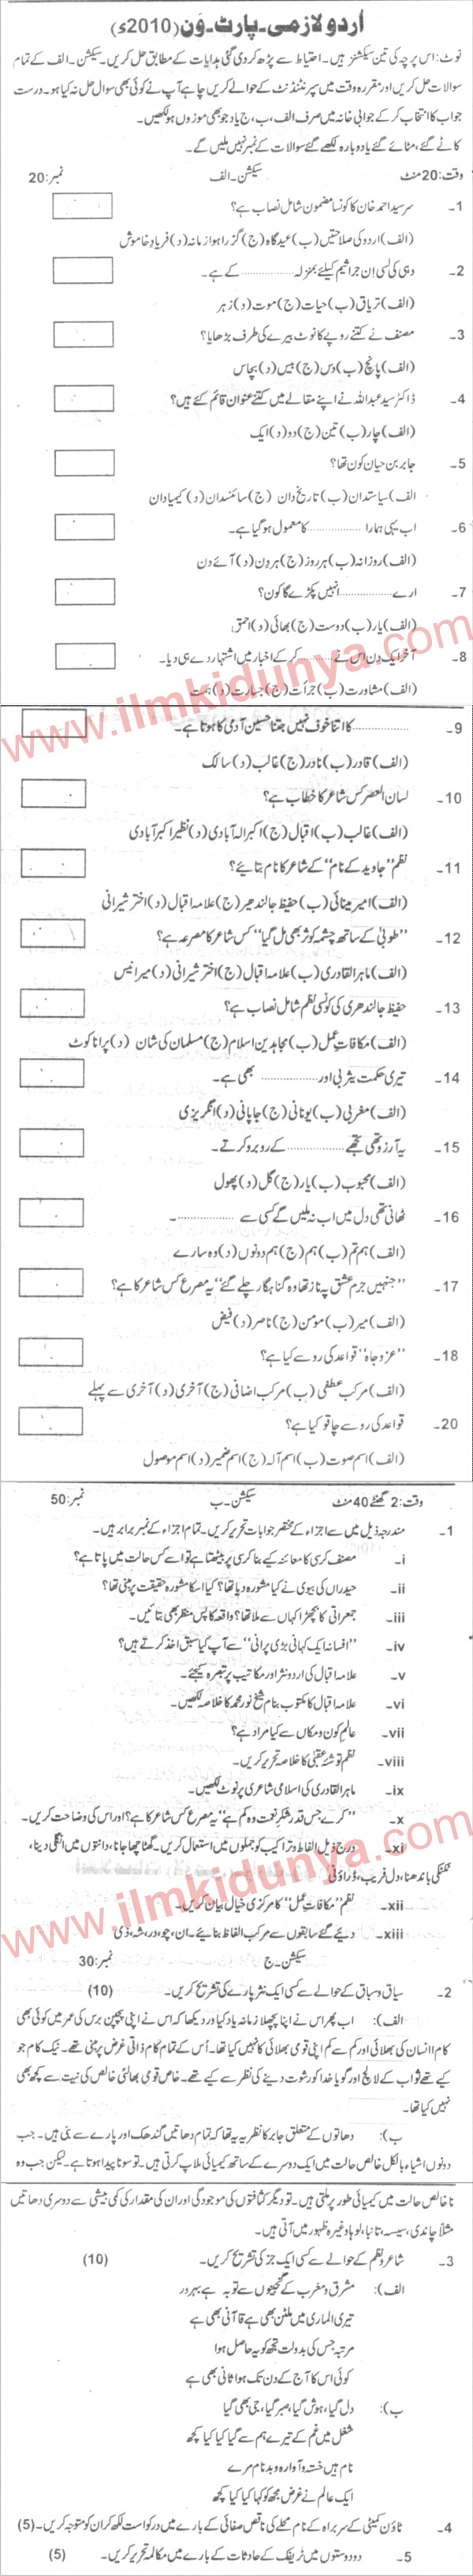 اُردو لازمی۔ پارٹ۔ وَن (2010ء)
نوٹ: اس پرچہ کی تین سیکشنز ہیں۔ احتیاط سے پڑھ کر دی گئی ہدایات کے مطابق حل کریں۔ سیکشن۔ الف کے تمام
سوالات حل کریں اور مقررہ وقت میں سپرنٹنڈنٹ کے حوالے کریں چاہے آپ نے کوئی بھی سوال حل نہ کیا ہو۔ درست
جواب کا انتخاب کر کے جوابی خانہ میں صرف الف، ب، ج یا د جو بھی موزوں ہو لکھیں۔
کاٹے گئے، مٹائے گئے یا دوبارہ لکھے گئے سوالات کے نمبر نہیں ملیں گے۔
وقت: 20 منٹ سیکشن۔ الف نمبر: 20
1۔ سرسید احمد خان کا کونسا مضمون شامل نصاب ہے؟
(الف) اردو کی صلاحتیں (ب) عید گاہ (ج) گزرا ہوا زمانہ (د) فریاد خاموش
2۔ دہی کی لسی ان جراثیم کیلئے بمنزلہ ............ کے ہے۔
(الف) تریاق (ب) حیات (ج) موت (د) زہر
3۔ مصنف نے کتنے روپے کا نوٹ بیرے کی طرف بڑھایا؟
(الف) پانچ (ب) دس (ج) بیس (د) پچاس
4۔ ڈاکٹر سید عبداللہ نے اپنے مقالے میں کتنے عنوان قائم کئے ہیں؟
(الف) چار (ب) تین (ج) دو (د) ایک
5۔ جابر بن حیان کون تھا؟
الف) سیاستدان (ب) تاریخ دان (ج) سائنسدان (د) کیمیا دان
6۔ اب یہی ہمارا ............ کا معمول ہو گیا ہے۔
(الف) روزانہ (ب) ہر روز (ج) ہر دن (د) آئے دن
7۔ ارے ............ انہیں پکڑے گا کون؟
(الف) یار (ب) دوست (ج) بھائی (د) احمق
8۔ آخر ایک دن اس نے ............ کر کے اخبار میں اشتہار دے ہی دیا۔
(الف) مشاورت (ب) جرأت (ج) جسارت (د) ہمت
www.ilmkidunya.com
9۔ ............ کا اتنا خوف نہیں جتنا حسین آدمی کا ہوتا ہے۔
(الف) قادر (ب) نادر (ج) غالب (د) سالک
10۔ لسان العصر کس شاعر کا خطاب ہے؟
(الف) غالب (ب) اقبال (ج) اکبر الہ آبادی (د) نظیر اکبر آبادی
11۔ نظم "جاوید کے نام" کے شاعر کا نام بتائیے؟
(الف) امیر مینائی (ب) حفیظ جالندھیر (ج) علامہ اقبال (د) اختر شیرانی
12۔ "طوبیٰ کے ساتھ چشمہ کوثر بھی مل گیا" کس شاعر کا مصرعہ ہے؟
(الف) ماہر القادری (ب) علامہ اقبال (ج) اختر شیرانی (د) میر انیس
13۔ حفیظ جالندھری کی کونسی نظم شامل نصاب ہے؟
(الف) مکافات عمل (ب) مجاہدین اسلام (ج) مسلمان کی شان (د) پرانا کوٹ
14۔ تیری حکمت یثربی اور ............ بھی ہے۔
(الف) مغربی (ب) یونانی (ج) جاپانی (د) انگریزی
15۔ یہ آرزو تھی تجھے ............ کے روبرو کرتے۔
(الف) محبوب (ب) یار (ج) گل (د) پھول
16۔ ٹھانی تھی دل میں اب نہ ملیں گے کسی سے ............۔
(الف) ہم تم (ب) ہم (ج) ہم دونوں (د) وہ سارے
17۔ "جنہیں جرم عشق پہ ناز تھا وہ گناہ گار چلے گئے" یہ مصرع کس شاعر کا ہے؟
(الف) میر (ب) مومن (ج) ناصر (د) فیض
18۔ "عز و جاہ" قواعد کی رو سے کیا ہے؟
(الف) مرکب عطفی (ب) مرکب اضافی (ج) آخری (د) آخری سے پہلے
20۔ قواعد کی رو سے چاقو کیا ہے؟
(الف) اسم صوت (ب) اسم آلہ (ج) اسم ضمیر (د) اسم موصول
وقت: 2 گھنٹے 40 منٹ سیکشن۔ ب نمبر: 50
1۔ مندرجہ ذیل میں سے اجزاء کے مختصر جوابات تحریر کریں۔ تمام اجزاء کے نمبر برابر ہیں۔
i۔ مصنف کرسی کا معائنہ کیے بنا کرسی پر بیٹھتا ہے تو اسے کس حالت میں پاتا ہے؟
ii۔ حیدراں کی بیوی نے کیا مشورہ دیا تھا؟ کیا اسکا مشورہ حقیقت پر مبنی تھا؟
iii۔ جمعراتی کا بچھڑا کہاں سے ملا تھا؟ واقعہ کا پس منظر بھی بتائیں۔
iv۔ "افسانہ ایک کہانی بڑی پرانی" سے آپ کیا سبق اخذ کرتے ہیں؟
v۔ علامہ اقبال کی اردو نثر اور مکاتیب پر تبصرہ کیجئے۔
vi۔ علامہ اقبال کا مکتوب بنام شیخ نور محمد کا خلاصہ لکھیں۔
vii۔ عالم کون و مکاں سے کیا مراد ہے؟
viii۔ نظم توشۂ عقبیٰ کا خلاصہ تحریر کریں۔
ix۔ ماہر القادری کی اسلامی شاعری پر نوٹ لکھیں۔
x۔ "کرے جس قدر شکر نعمت وہ کم ہے" یہ مصرع کس شاعر کا ہے؟ اور اس کی وضاحت کریں۔
xi۔ درج ذیل الفاظ و تراکیب کو جملوں میں استعمال کریں۔ گھٹا چھا جانا، دانتوں میں انگلی دینا،
ٹکٹکی باندھنا، دل فریب، ڈراؤنی
xii۔ نظم "مکافات عمل" کا مرکزی خیال بیان کریں۔
xiii۔ دیئے گئے سابقوں سے مرکب الفاظ بنائیے۔ ان، چو، در، شہ، ذی
www.ilmkidunya.com
سیکشن۔ ج نمبر: 30
2۔ سیاق و سباق کے حوالے سے کسی ایک نثر پارے کی تشریح کریں۔ (10)
الف): اب پھر اس نے اپنا پچھلا زمانہ یاد کیا اور دیکھا کہ اس نے اپنی پچپن برس کی عمر میں کوئی بھی
کام انسان کی بھلائی اور کم سے کم اپنی قومی بھلائی کا نہیں کیا تھا۔ اُس کے تمام کام ذاتی غرض پر مبنی تھے۔ نیک کام جو
کیے تھے ثواب کے لالچ اور گویا خدا کو رشوت دینے کی نظر سے کیے تھے۔ خاص قومی بھلائی خالص کی نیت سے کچھ بھی
نہیں کیا تھا۔
ب): دھاتوں کے متعلق جابر کا نظریہ یہ تھا کہ تمام دھاتیں گندھک اور پارے سے بنی ہیں۔ جب
دونوں اشیاء بالکل خالص حالت میں ایک دوسرے کے ساتھ کیمیائی ملاپ کرتی ہیں۔ تو سونا پیدا ہوتا ہے۔ لیکن جب وہ
نا خالص حالت میں کیمیائی طور پر ملتی ہیں۔ تو دیگر کثافتوں کی موجودگی اور ان کی مقدار کی کمی بیشی سے دوسری دھاتیں
مثلاً چاندی، سیسہ، تانبا، لوہا وغیرہ ظہور میں آتی ہیں۔
3۔ شاعر و نظم کے حوالے سے کسی ایک جز کی تشریح کریں۔ (10)
الف): مشرق و مغرب کے گنجینوں سے تو بہ ہے بہرہ ور
تیری الماری میں ملٹن بھی ہے قاآنی بھی ہے
مرتبہ جس کی بدولت تجھ کو یہ حاصل ہوا
کوئی اس کا آج کے دن تک ہوا ثانی بھی ہے
ب): دل گیا، ہوش گیا، صبر گیا، جی بھی گیا
شغل میں غم کے تیرے ہم سے گیا کیا کیا کچھ
نام ہیں خستہ و آوارہ و بدنام مرے
ایک عالم نے غرض مجھ کو کہا کیا کیا کچھ
4۔ ٹاؤن کمیٹی کے سربراہ کے نام محلے کی ناقص صفائی کے بارے میں درخواست لکھ کر ان کو متوجہ کریں۔ (5)
5۔ دو دوستوں میں ٹریفک کے حادثات کے بارے میں مکالمہ تحریر کریں۔ (5)